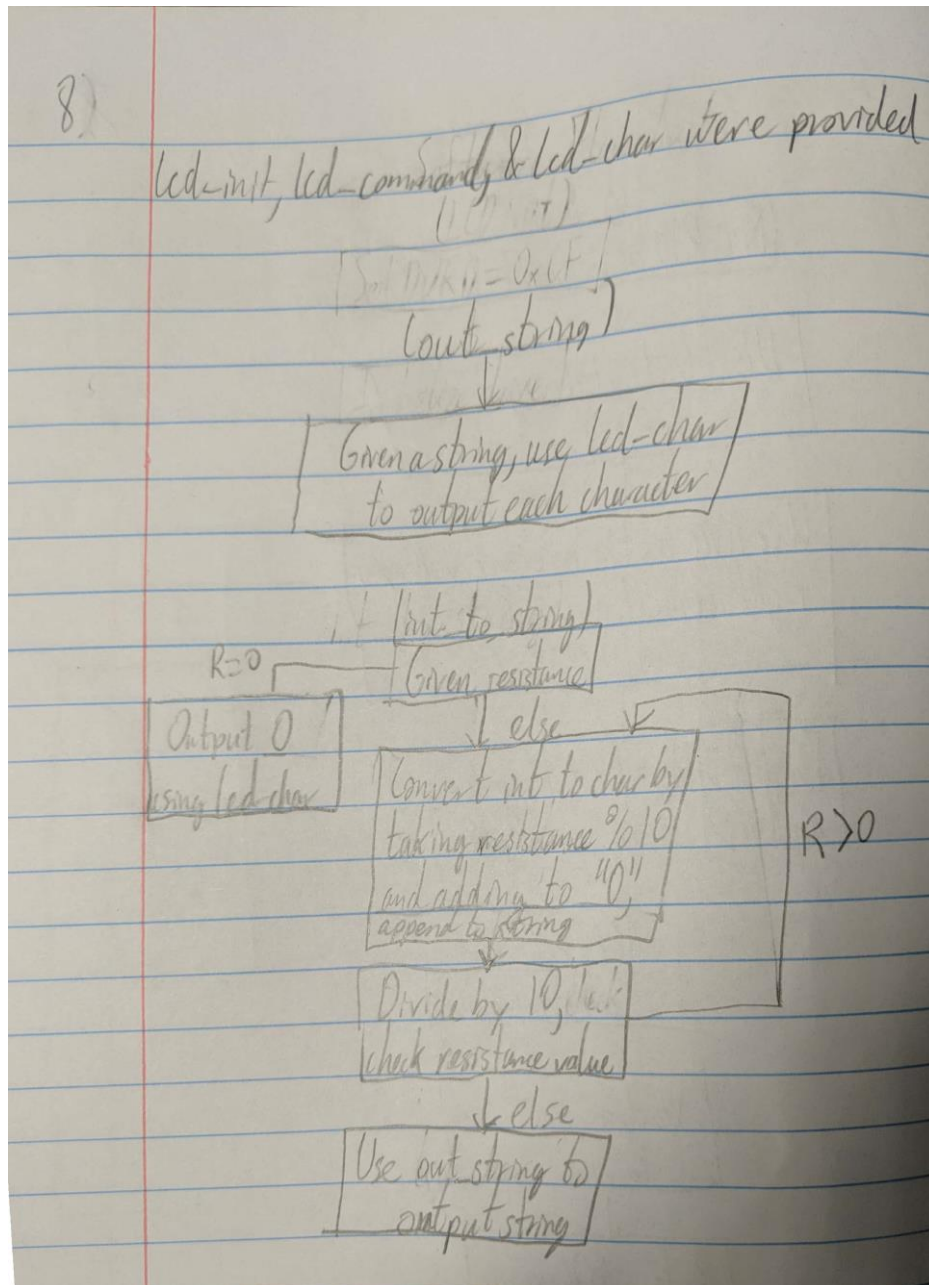 8)
lcd_init, lcd_command, & lcd_char were provided
(out_string)
Given a string, use lcd_char
to output each character
(int_to_string)
R=0
Given resistance
else
Output 0
using lcd_char
Convert int to char by
taking resistance % 10
and adding to "0",
append to string
R>0
Divide by 10,
check resistance value
else
Use out_string to
output string